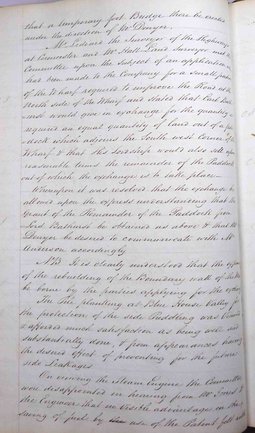 that a temporary foot Bridge there be erected
under the direction of Mr Denyer.
Mr. the Surveyor of the Highways
at Cirencester and Mr Hall Land Surveyor met the
Committee upon the Subject of an application
has been made to the Company for a small part
of the Wharf required to improve the Road at the
North side of the Wharf and stated that Earl Bath-
-urst would give in exchange for the quantity
required an equal quantity of land out of a pad-
-dock which adjoins the South west Corner of the
Wharf & that his Lordship would also sell on
reasonable terms the remainder of the Paddock
out of which the exchange is to take place
Whereupon it was resolved that the exchange be
allowed upon the express understanding that the
Grant of the Remainder of the Paddock from
Lord Bathurst be obtained as above & that Mr
Denyer be desired to communicate with Mr
Anderson accordingly
NB It is clearly understood that the expense
of the rebuilding of the Boundary wall of the
be borne by the parties applying for the
The Pile planking at Blue House Valley for
the protection of the side Puddling was viewed
& afforded much satisfaction as being well and
substantially done, & from appearances having
the desired effect of preventing for the future
side Leakages
On viewing the Steam Engine the Committee
were disappointed in hearing from Mr
the Engineer that no visible advantages in the
saving of fuel by use of the Patent